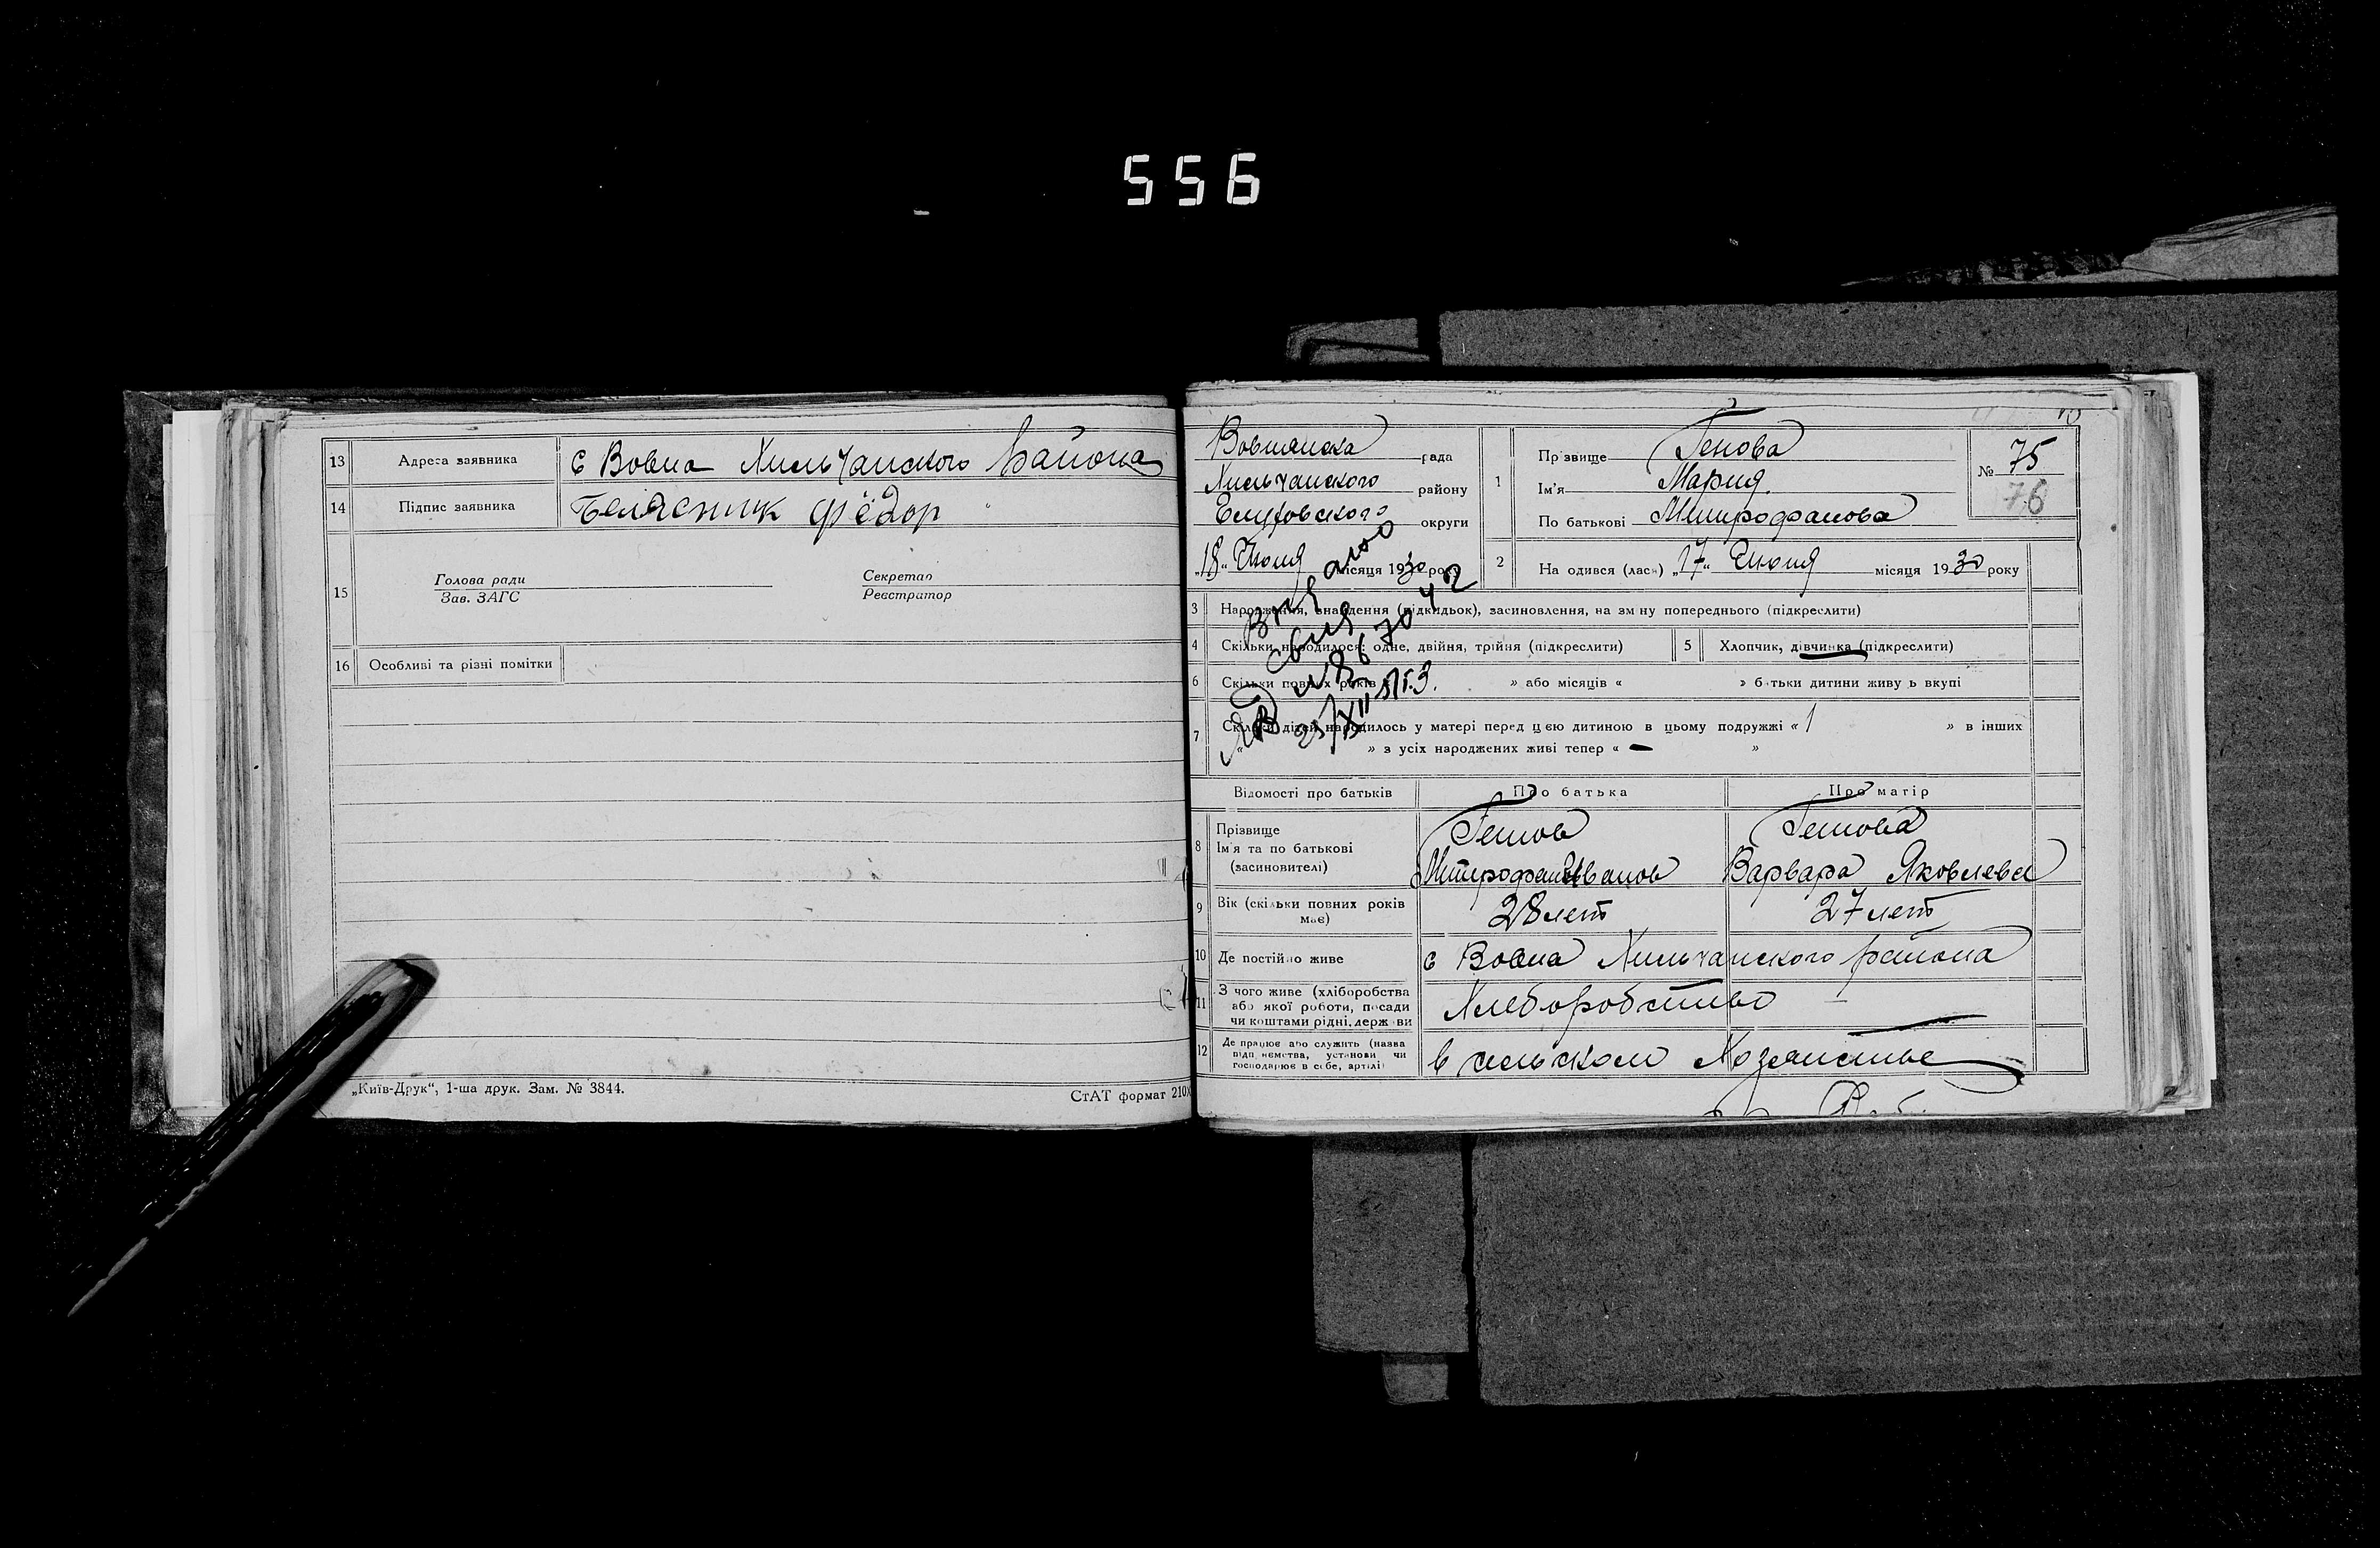 556
13 Адреса заявника с Вовна Хильчанского Района
14 Підпис заявника Белясник Фёдор
15 Голова ради
Зав. ЗАГС
Секретар
Реєстратор
16 Особливі та різні помітки
„Київ-Друк“, 1-ша друк. Зам. № 3844.
СтАТ формат 210х
Вовнянска рада
Хильчанского району
Глуховского округи
„18“ Июня місяця 1930 року
1 Прізвище Генова
Ім'я Мария
По батькові Митрофанова
№ 75
76
2 На одився (лась) „17“ Июня місяця 1930 року
3 Народження, знайдення (підкидьок), засиновлення, на зм ну попереднього (підкреслити)
4 Скільки народилося: одне, двійня, трійня (підкреслити)
5 Хлопчик, дівчинка (підкреслити)
6 Скільки повних років » або місяців « » б тьки дитини живу ь вкупі
7 Скільки дітей народилось у матері перед цією дитиною в цьому подружжі « 1 » в інших
« » з усіх народжених живі тепер « – »
Відомості про батьків Про батька Про матір
8 Прізвище Генов Генова
Ім'я та по батькові
(засиновителі) Митрофан Иванов Варвара Яковлева
9 Вік (скільки повних років має) 28 лет 27 лет
10 Де постійно живе с Вовна Хильчанского района
11 З чого живе (хліборобства
або якої роботи, посади
чи коштами рідні, держ ви Хлеборобство –
12 Де працює або служить (назва
підп иємства, установи чи
господарює в себе, артілі) в сельском Хозяистве